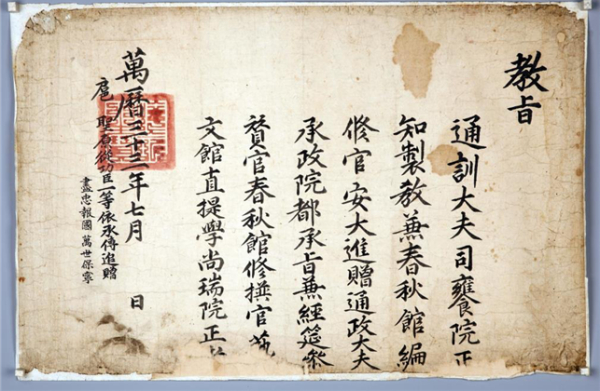 教旨
通訓大夫司饔院正
知製教兼春秋館編
修官安大進贈通政大夫
承政院都承旨兼經筵參
賛官春秋館修撰官藝
文館直提學尚瑞院正
萬曆三十三年七月 日
扈聖原從功臣一等依承傳追贈
盡忠報國 萬世保寧